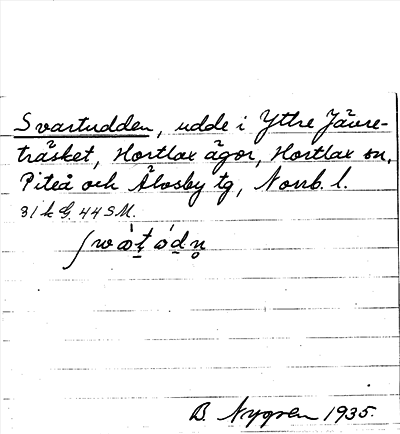 Svartudden, udde i Yttre Jävre-
träsket, Hortlax ägor, Hortlax sn,
Piteå och Älvsby tg, Norrb. l.
31 k G, 44 S.M.
B. Nygren 1935.